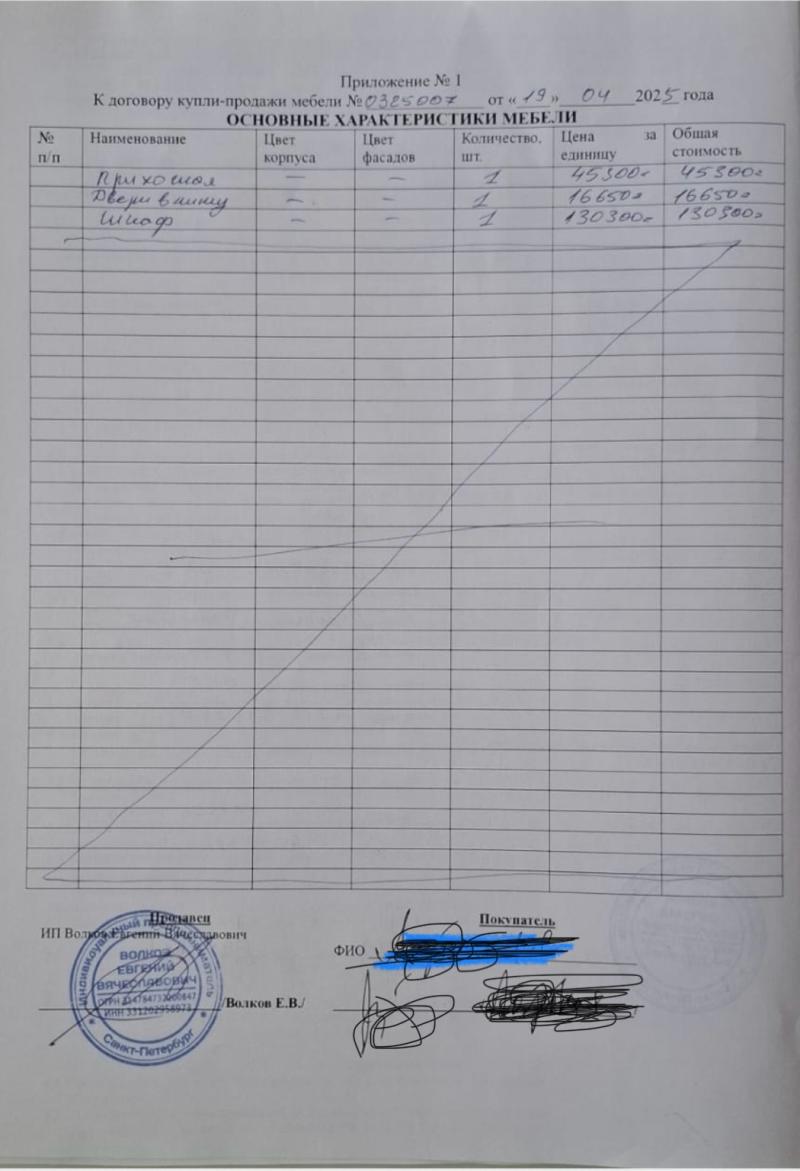 Приложение № 1
К договору купли-продажи мебели № 0325007 от « 19 » 04 2025 года
ОСНОВНЫЕ ХАРАКТЕРИСТИКИ МЕБЕЛИ
№ п/п Наименование Цвет корпуса Цвет фасадов Количество, шт. Цена за единицу Общая стоимость
Прихожая — — 1 45300= 45300=
Двери в нишу — — 1 16650= 16650=
Шкаф — — 1 130300= 130300=
Продавец Покупатель
ИП Волков Евгений Вячеславович
ФИО
/Волков Е.В./
Индивидуальный предприниматель
ВОЛКОВ
ЕВГЕНИЙ
ВЯЧЕСЛАВОВИЧ
ИНН 331202958973
Санкт-Петербург